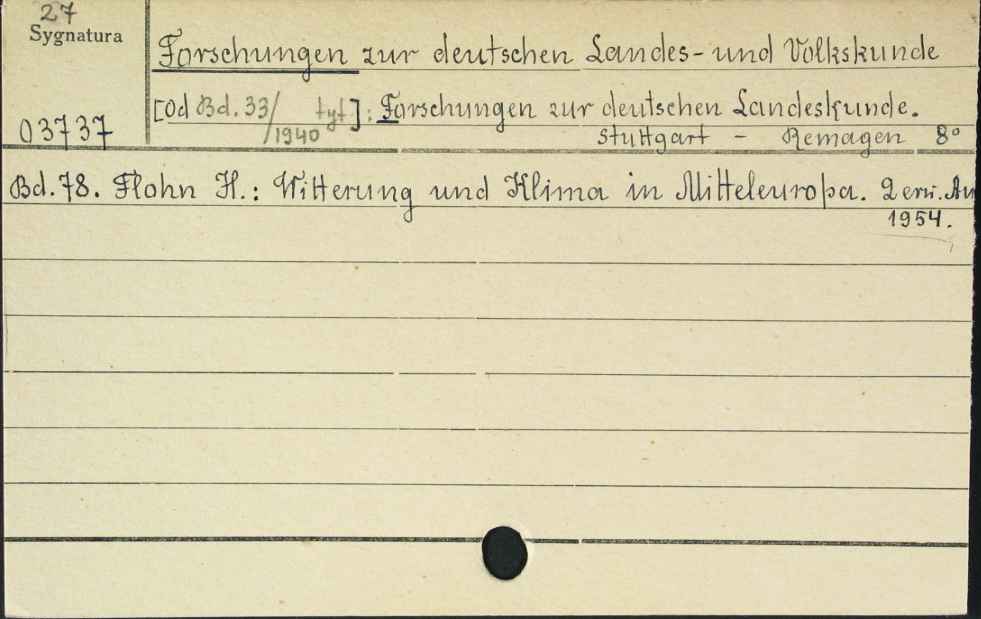 27
Sygnatura
03737
Forschungen zur deutschen Landes- und Volkskunde
[Od Bd. 33/1940 tyt]: Forschungen zur deutschen Landeskunde.
Stuttgart - Remagen 8°
Bd. 78. Flohn H.: Witterung und Klima in Mitteleuropa. 2 erw. Au
1954.